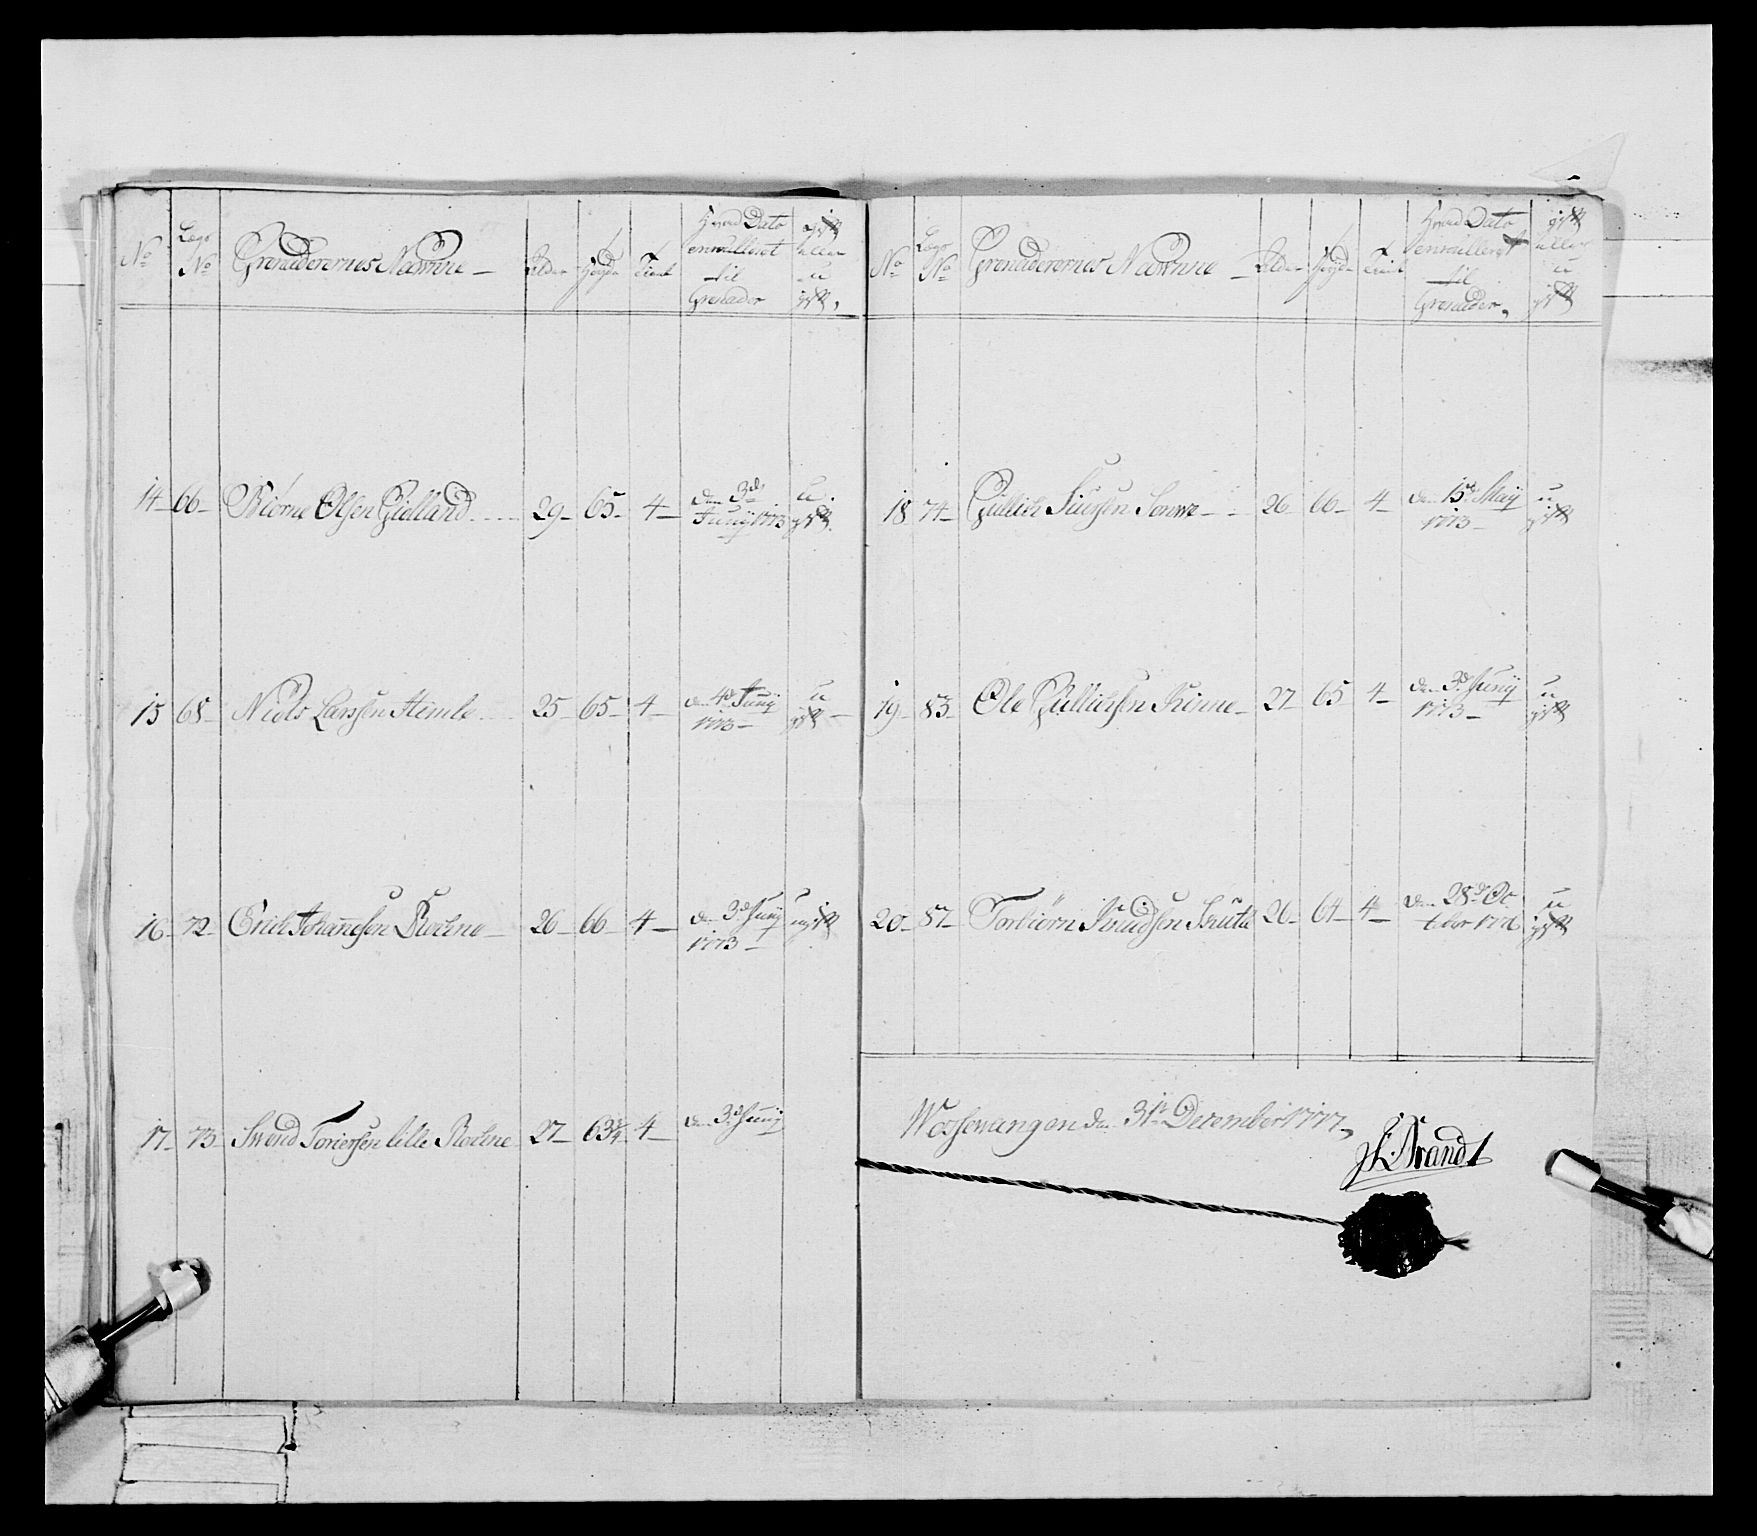 No Lægs No Grenaderernes Nawnne Alder Høyde Tient Hvad Dato enrulleret til Grenader gift eller u gift
14 66 Biørne Olsen Gielland 29 65 4 den 3de Junij 1773 u gift
15 68 Niels Larssen Himle 25 65 4 den 4de Junij 1773 u gift
16 72 Erich Johannesen Rochne 26 66 4 den 3de Junij 1773 ugift
17 73 Swend Toriersen lille Rochne 27 63¾ 4 den 3de Junij
No Lægs No Grenaderernes Nawnne Alder Høyde Tient Hvad Dato enrulleret til Grenader gift eller u gift
18 74 Gullich Siursen Sonwe 26 66 4 den 15de Maij 1773 u gift
19 83 Ole Gullichsen Rinne 27 65 4 den 3de Junij 1773 u gift
20 87 Torbiørn Knudsen 26 64 4 den 28de Octobr 1776 u gift
Wossewangen den 31te December 1777,
Brandt